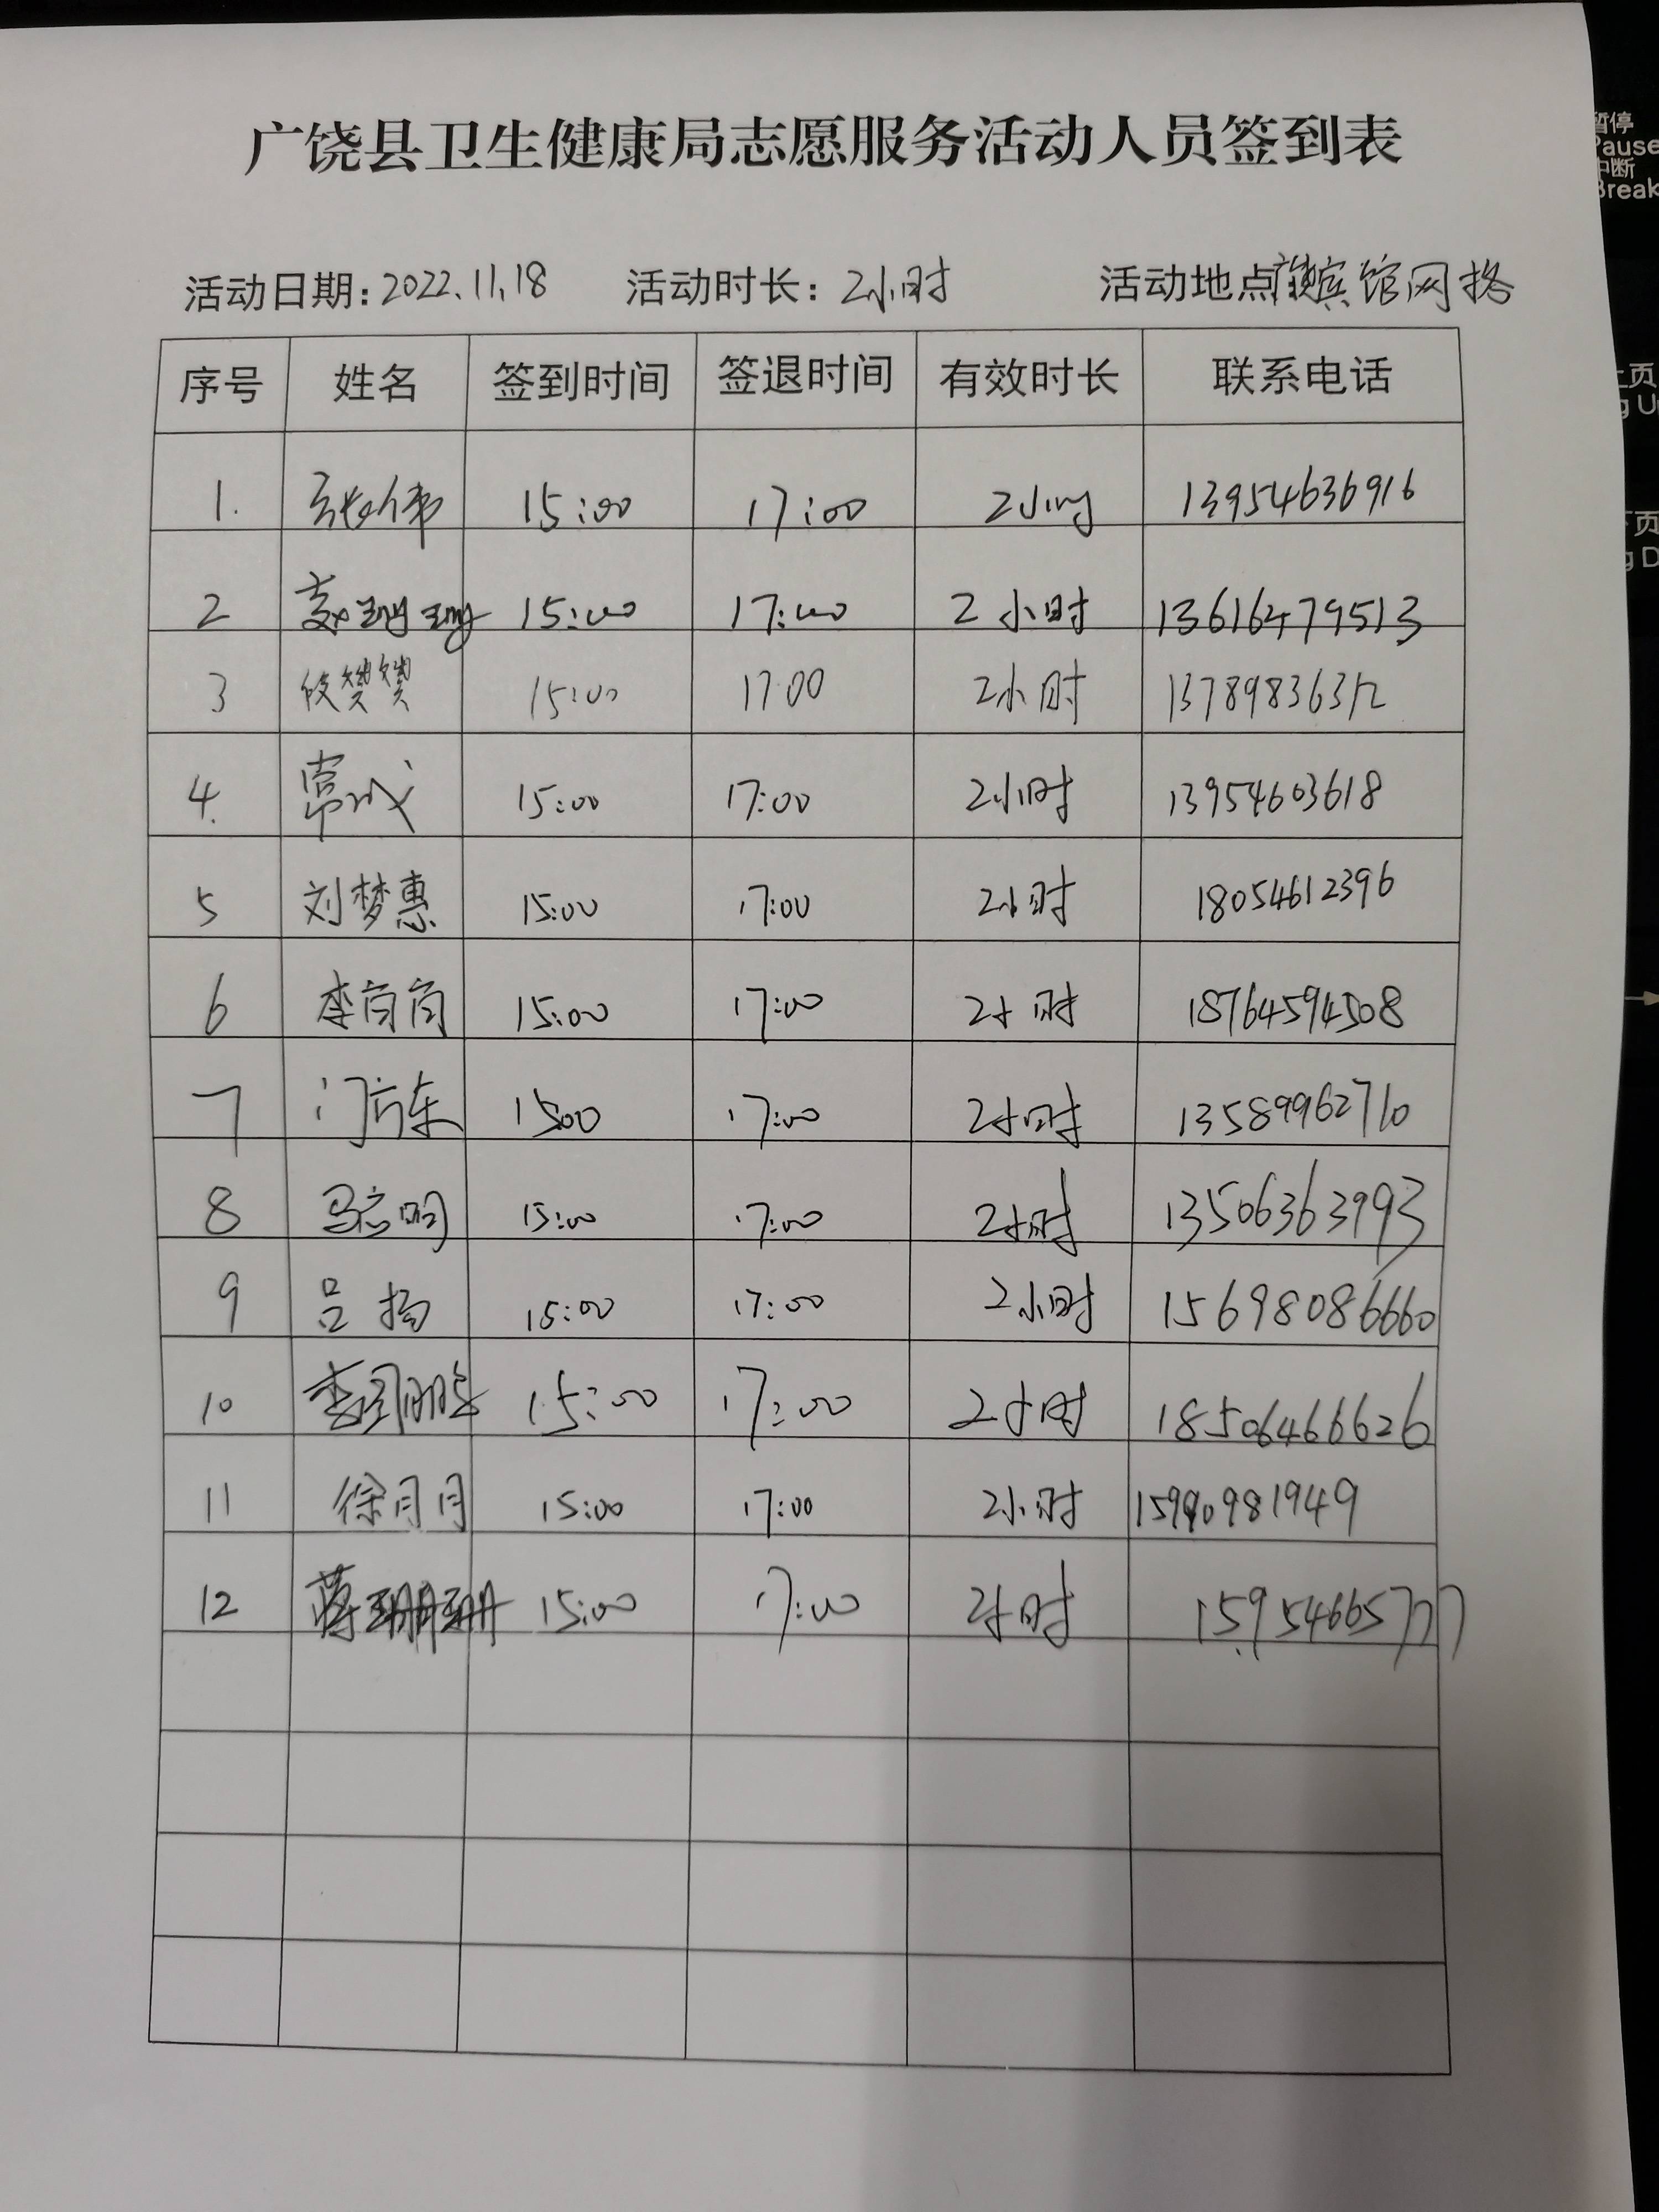 广饶县卫生健康局志愿服务活动人员签到表
活动日期：2022.11.18 活动时长：2小时 活动地点 宾馆网格
序号 姓名 签到时间 签退时间 有效时长 联系电话
1. 张伟 15:00 17:00 2小时 13954636916
2 15:00 17:00 2小时 13616479513
3 15:00 17:00 2小时 13789836312
4. 常成 15:00 17:00 2小时 13954603618
5 刘梦惠 15:00 17:00 2小时 18054612396
6 李肖肖 15:00 17:00 2小时 18764594508
7 门方东 1500 17:00 2小时 13589962710
8 马志明 15:00 17:00 2小时 13506363993
9 吕扬 15:00 17:00 2小时 15698086660
10 15:00 17:00 2小时 18506466626
11 徐月月 15:00 17:00 2小时
12 蒋珊珊 15:00 17:00 2小时 15954665777
暂停
Pause
中断
Break
上页
下页